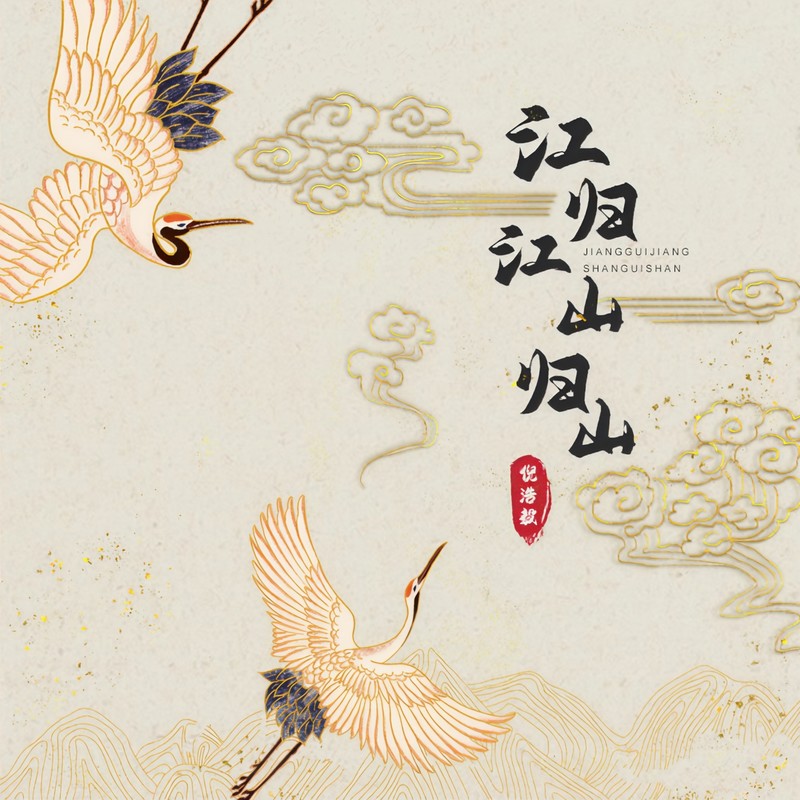 江归
江山
归山
JIANGGUIJIANG
SHANGUISHAN
倪浩毅